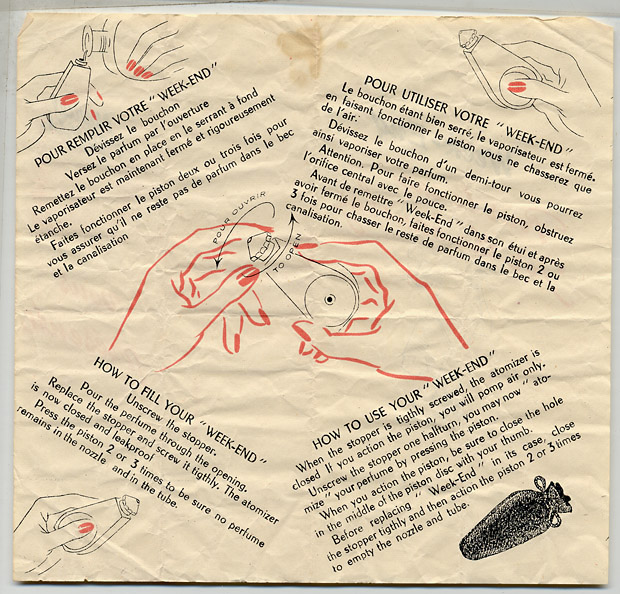 POUR REMPLIR VOTRE "WEEK-END"
Dévissez le bouchon
Versez le parfum par l'ouverture
Remettez le bouchon en place en le serrant à fond
Le vaporisateur est maintenant fermé et rigoureusement
étanche.
Faites fonctionner le piston deux ou trois fois pour
vous assurer qu'il ne reste pas de parfum dans le bec
et la canalisation
POUR UTILISER VOTRE "WEEK-END"
Le bouchon étant bien serré, le vaporisateur est fermé.
en faisant fonctionner le piston vous ne chasserez que
de l'air.
Dévissez le bouchon d'un demi-tour vous pourrez
ainsi vaporiser votre parfum.
Attention. Pour faire fonctionner le piston, obstruez
l'orifice central avec le pouce.
Avant de remettre "Week-End" dans son étui et après
avoir fermé le bouchon, faites fonctionner le piston 2 ou
3 fois pour chasser le reste de parfum dans le bec et la
canalisation.
POUR OUVRIR
TO OPEN
HOW TO FILL YOUR "WEEK-END"
Unscrew the stopper.
Pour the perfume through the opening.
Replace the stopper and screw it tigthly. The atomizer
is now closed and leakproof.
Press the piston 2 or 3 times to be sure no perfume
remains in the nozzle and in the tube.
HOW TO USE YOUR "WEEK-END"
When the stopper is tigthly screwed, the atomizer is
closed If you action the piston, you will pomp air only.
Unscrew the stopper one halfturn, you may now "ato-
mize" your perfume by pressing the piston.
When you action the piston, be sure to close the hole
in the middle of the piston disc with your thumb.
Before replacing "Week-End" in its case, close
the stopper tigthly and then action the piston 2 or 3 times
to empty the nozzle and tube.